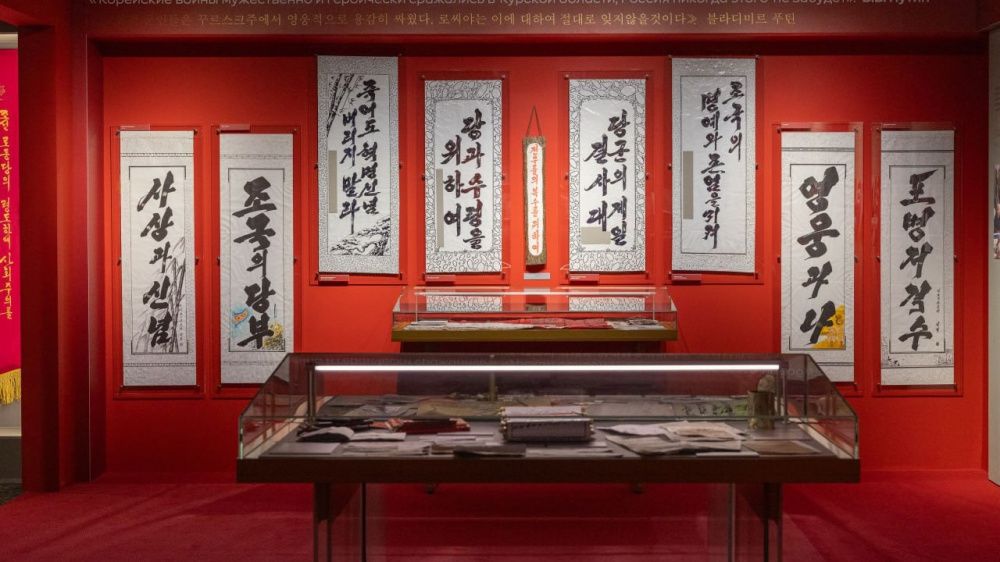 «Корейские воины мужественно и героически сражались в Курской области, Россия никогда этого не забудет».
인들은 꾸르스크주에서 영웅적으로 용감히 싸웠다. 로씨야는 이에 대하여 절대로 잊지않을것이다≫ 블라디미르 푸틴
로동당의 사회주의를
사상과 신념
조국의 당부
죽어도 혁명신념
버리지 말라
당과 수령을
위하여
전우들의 복수를 위하여
당군의 제일
결사대
조국의
명예와 존엄을
영웅과 나